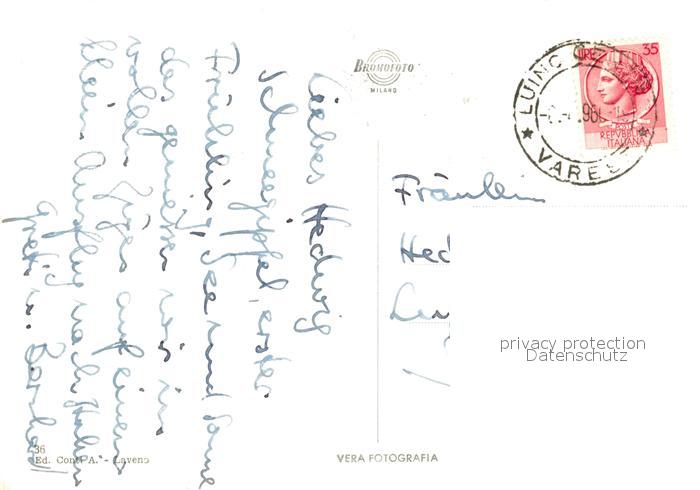 Liebes Hedwig
Schneegipfel, erster
Frühling, See und Sonne
das geniessen wir in
vollen Zügen auf einem
klein Ausflug nach Italien
BROMOFOTO
MILANO
LUINO
VARESE
LIRE 35
POSTE
REPVBBLICA
ITALIANA
Fräulein
privacy protection
Datenschutz
36
Ed. Conti A. - Laveno
VERA FOTOGRAFIA